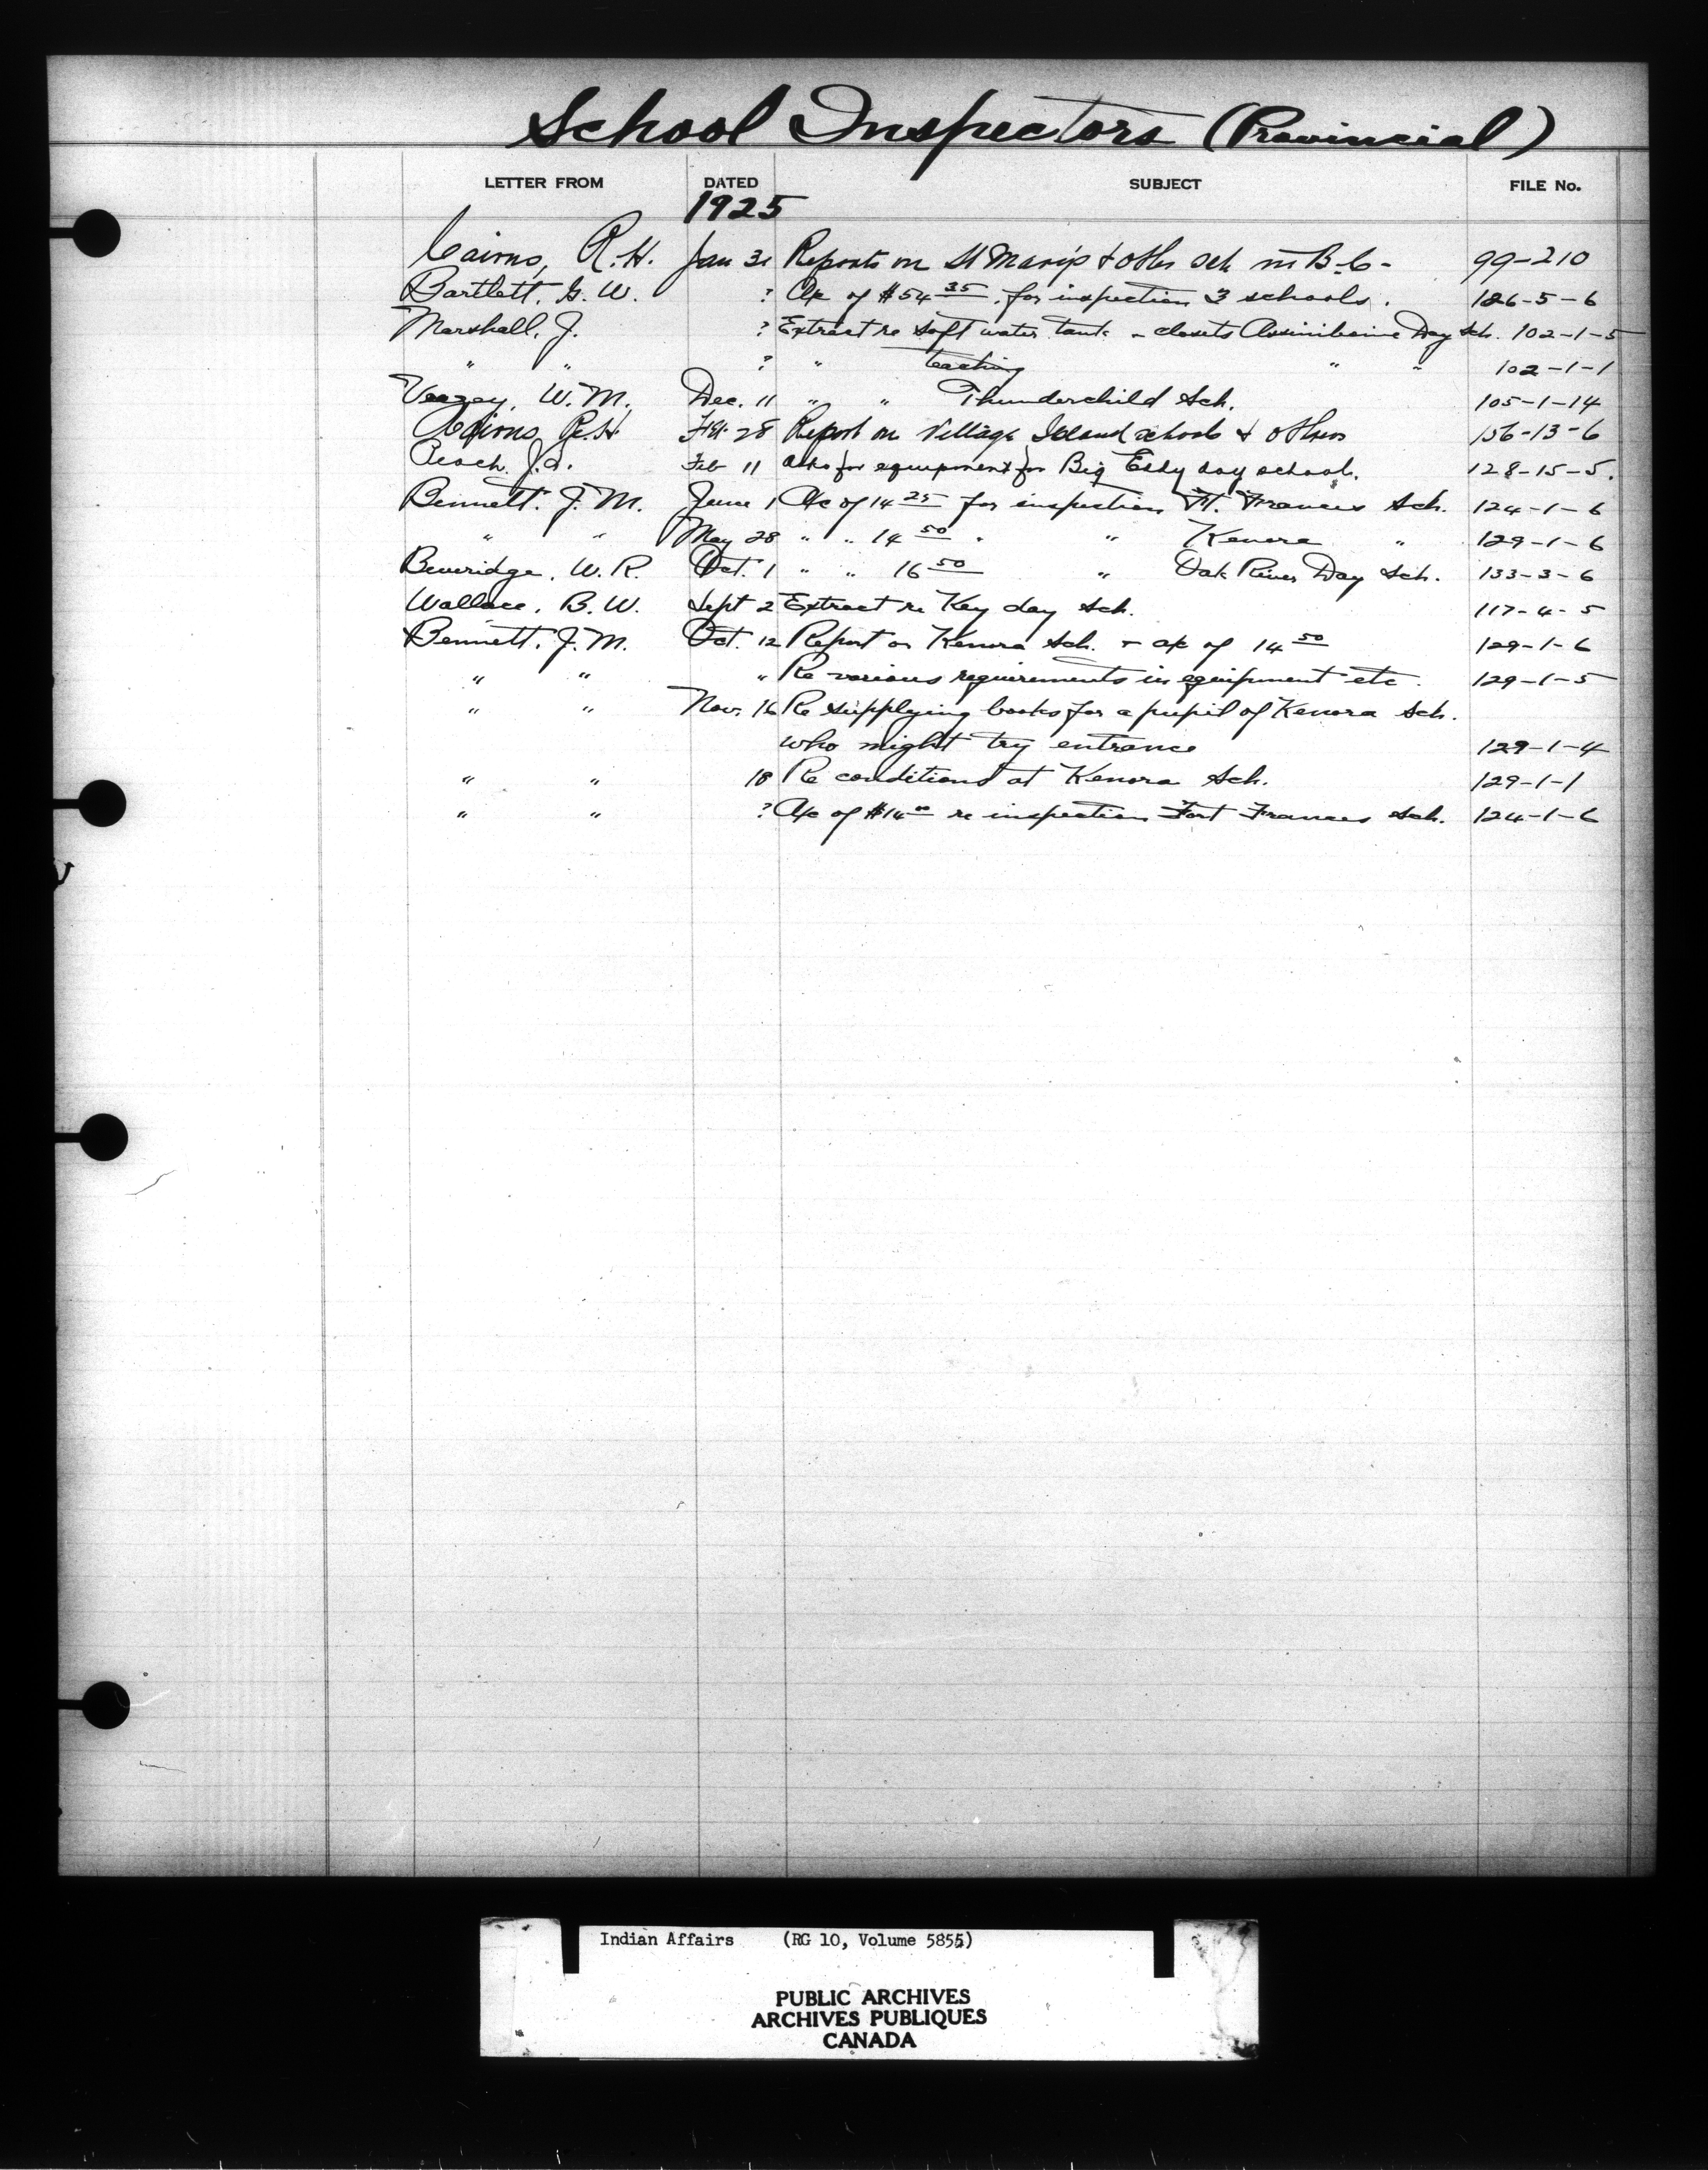 School Inspectors (Provincial)
LETTER FROM DATED SUBJECT FILE No.
1925
Cairns, R.H. Jan 31 Reports on St Mary's & other Sch in B.C. 99-210
Bartlett, G. W. ? A/c of $54 35 for inspection 3 schools. 126-5-6
Marshall, J. ? Extract re soft water tank - closets Assiniboine Day Sch. 102-1-5
" " ? " teaching " " 102-1-1
Veazey, W. M. Dec. 11 " " Thunderchild Sch. 105-1-14
Cairns R.H Feb. 28 Report on Village Island schools & others 156-13-6
J. Feb 11 asks for equipment for Big Eddy day school. 128-15-5.
Bennett. J. M. June 1 A/c of 14 25 for inspection Ft. Frances Sch. 124-1-6
" " May 28 " " 14 50 " " Kenora " 129-1-6
Beveridge, W. R. Oct. 1 " " 16 50 " Oak River Day Sch. 133-3-6
Wallace, B. W. Sept 2 Extract re Key day Sch. 117-4-5
Bennett, J. M. Oct. 12 Report on Kenora Sch. & a/c of 14 50 129-1-6
" " " Re various requirements in equipment etc. 129-1-5
" " Nov. 16 Re supplying books for a pupil of Kenora Sch.
who might try entrance 129-1-4
" " 18 Re conditions at Kenora Sch. 129-1-1
" " ? A/c of $14 00 re inspection Fort Frances Sch. 124-1-6
Indian Affairs (RG 10, Volume 5855)
PUBLIC ARCHIVES
ARCHIVES PUBLIQUES
CANADA